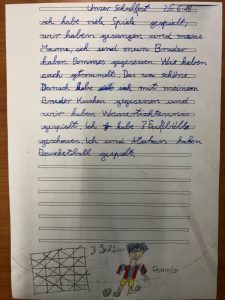 Unser Schulfest 26.6.18
ich habe viele Spiele gespielt,
wir haben gesungen und meine
Mamma, ich und mein Bruder
haben Pommes gegessen. Wir haben
auch getrommelt. Das war schöne
Danach habe ich mit meinem
Bruder Kuchen gegessen und
wir haben
gespielt. Ich habe
geschossen. Ich und haben
Basketball gespielt.
3
Romeo